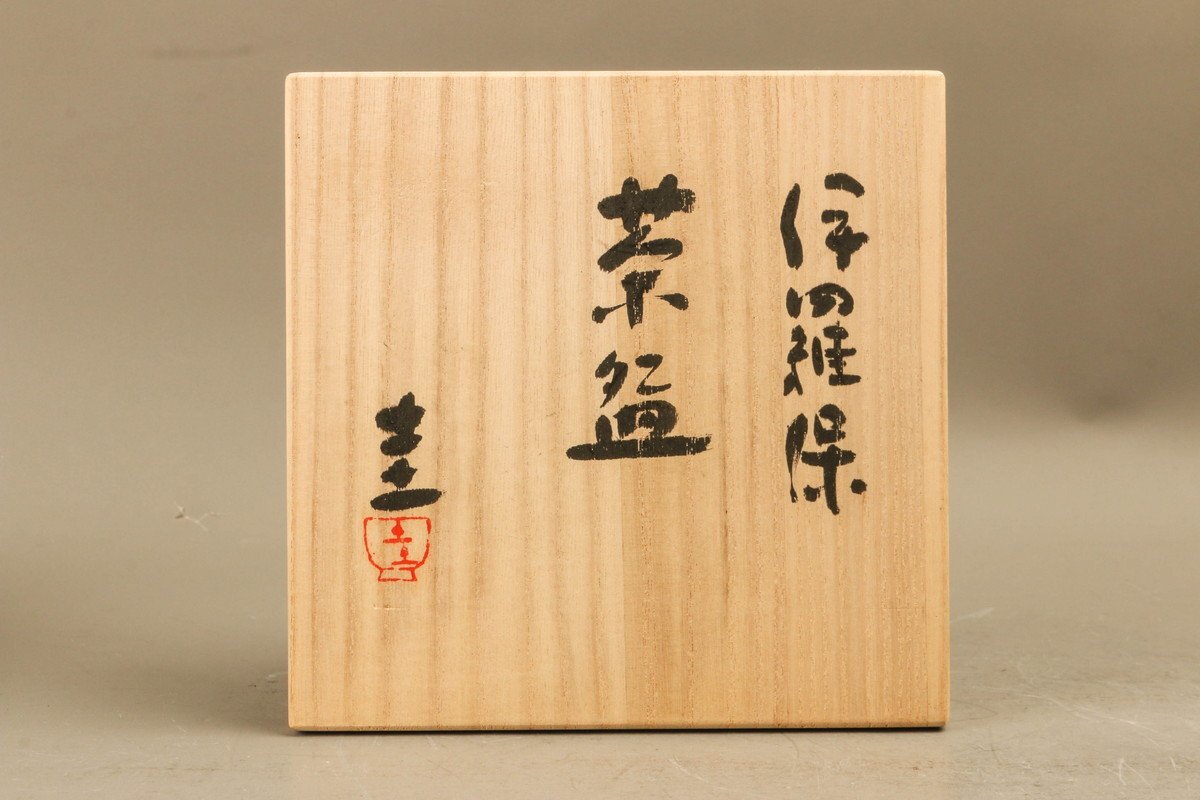 伊羅保
茶盌
圭
圭